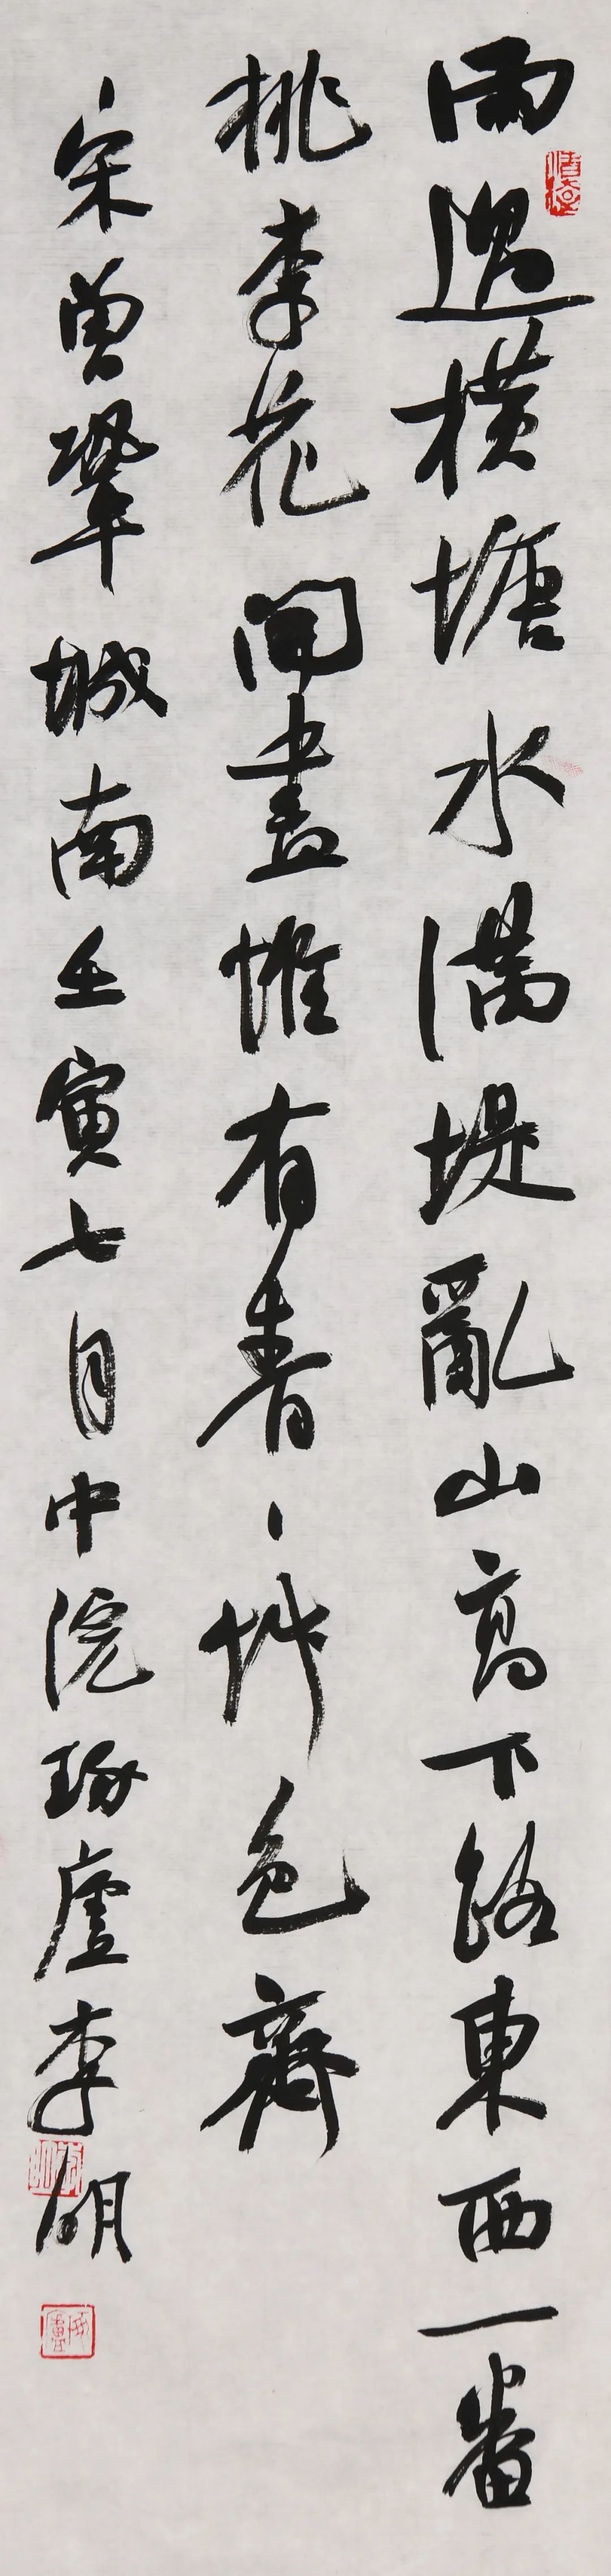 雨過橫塘水滿堤亂山高下路東西一番
桃李花開盡惟有青、艸色齊
宋曾鞏城南壬寅七月中浣琢廬李明